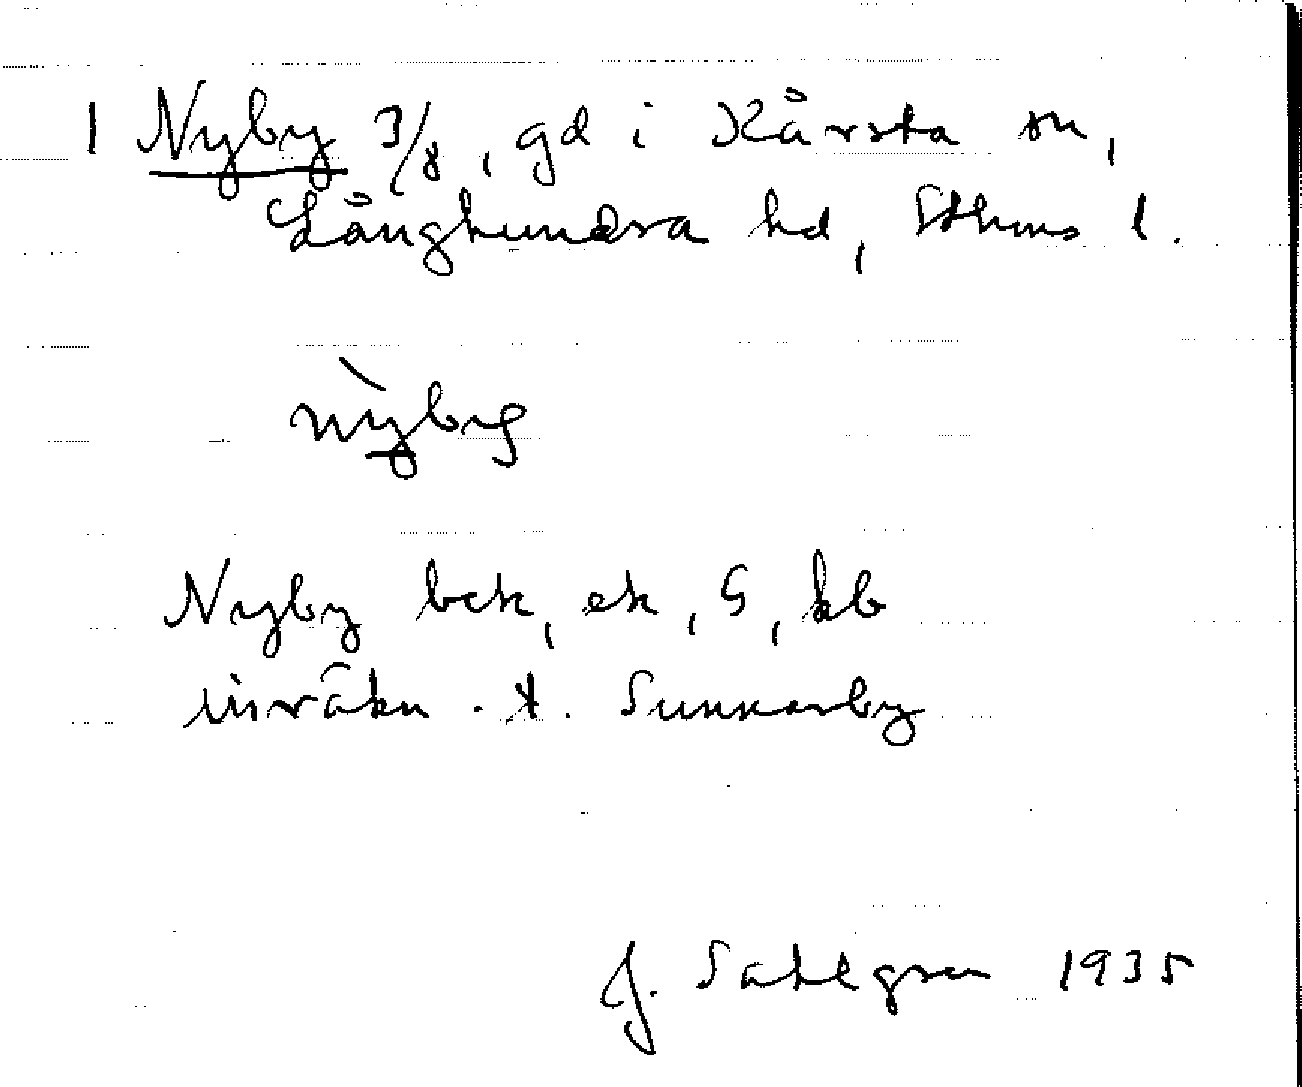 1 Nyby 3/8, gd i Kårsta sn,
Långhundra hd, Sthms l.
nỳby
Nyby bek, ek, G, kb
inräkn. t. Sunnarby
J. Sahlgren 1935